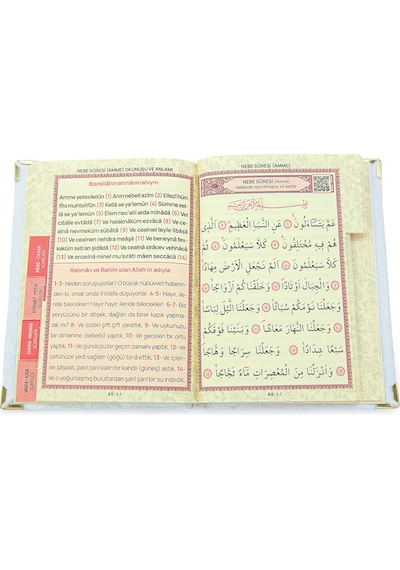 NEBE SÛRESİ (AMME) OKUNUŞU VE ANLAMI
Bismillâhirrahmânirrahıym.
Amme yetesâelûn (1) Anin nebeil azıym (2) Ellezî hüm
fîhi muhtelifûn (3) Kellâ se ya'lemûn (4) Sümme kel-
lâ se ya'lemûn (5) Elem nec'alil arda mihâdâ (6) Vel
cibâle evtâdâ (7) Ve halaknâküm ezvâcâ (8) Ve ce-
alnâ nevmeküm sübâtâ (9) Ve cealnel leyle libâsâ
(10) Ve cealnen nehâra meâşâ (11) Ve beneynâ fev-
kaküm seb'an şidâdâ (12) Ve cealnâ sirâcev vehhâcâ
(13) Ve enzelnâ minel mu'sırâti mâen seccâcâ (14)
Rahmân ve Rahîm olan Allah'ın adıyla.
1-3- Neden soruyorlar? O büyük nübüvvet haberin-
den ki, onlar onda ihtilafa düşüyorlar. 4-5- Hayır, ile-
ride bilecekler! Yine hayır, ileride bilecekler! 6-7- Biz
yeryüzünü bir döşek, dağları da birer kazık yapma-
dık mı? 8- Ve sizleri çift çift yarattık, 9- Ve uykunuzu
bir dinlenme (sebebi) yaptık, 10- Ve geceleri bir örtü
yaptık, 11- Ve gündüzü bir geçim zamanı yaptık, 12- Ve
üstünüze yedi sağlam (göğü) binâ ettik, 13- Ve içleri-
ne şâşaalı, parıl parıl kalın bir kandil (güneş) astık, 14-
Ve o yoğunlaşmış bulutlardan şarıl şarıl bir su indirdik.
45-٤٥
NEBE - CUMA
SÛRELERİ
VAKIA - KISA
SÛRELER
NEBE SÛRESİ (AMME)
NEBE SÛRESİ (Amme)
Mekke'de nazil olmuştur. 40 ayettir.
عَمَّ يَتَسَاءَلُونَ ۝ عَنِ النَّبَأِ الْعَظِيمِ ۝ الَّذِي
هُمْ فِيهِ مُخْتَلِفُونَ ۝ كَلَّا سَيَعْلَمُونَ ۝ ثُمَّ
كَلَّا سَيَعْلَمُونَ ۝ أَلَمْ نَجْعَلِ الْأَرْضَ مِهَادًا
۝ وَالْجِبَالَ أَوْتَادًا ۝ وَخَلَقْنَاكُمْ أَزْوَاجًا ۝
وَجَعَلْنَا نَوْمَكُمْ سُبَاتًا ۝ وَجَعَلْنَا اللَّيْلَ لِبَاسًا
۝ وَجَعَلْنَا النَّهَارَ مَعَاشًا ۝ وَبَنَيْنَا فَوْقَكُمْ
سَبْعًا شِدَادًا ۝ وَجَعَلْنَا سِرَاجًا وَهَّاجًا
۝ وَأَنْزَلْنَا مِنَ الْمُعْصِرَاتِ مَاءً ثَجَّاجًا ۝
44-٤٤